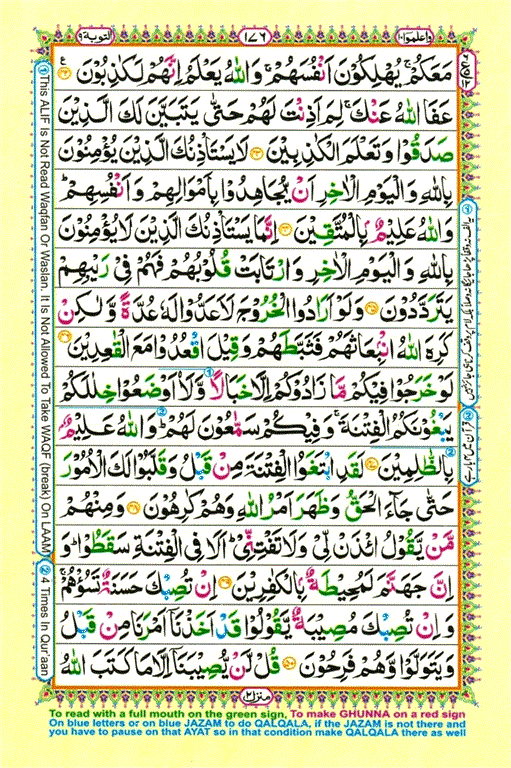 واعلموا ١٠
١٧٦
التوبة ٩
مَعَكُمْ ۚ يُهْلِكُوْنَ اَنْفُسَهُمْ ۚ وَاللّٰهُ يَعْلَمُ اِنَّهُمْ لَكٰذِبُوْنَ
عَفَا اللّٰهُ عَنْكَ ۚ لِمَ اَذِنْتَ لَهُمْ حَتّٰى يَتَبَيَّنَ لَكَ الَّذِيْنَ
صَدَقُوْا وَتَعْلَمَ الْكٰذِبِيْنَ لَا يَسْتَاْذِنُكَ الَّذِيْنَ يُؤْمِنُوْنَ
بِاللّٰهِ وَالْيَوْمِ الْاٰخِرِ اَنْ يُّجَاهِدُوْا بِاَمْوَالِهِمْ وَاَنْفُسِهِمْ ؕ
وَاللّٰهُ عَلِيْمٌۢ بِالْمُتَّقِيْنَ اِنَّمَا يَسْتَاْذِنُكَ الَّذِيْنَ لَا يُؤْمِنُوْنَ
بِاللّٰهِ وَالْيَوْمِ الْاٰخِرِ وَارْتَابَتْ قُلُوْبُهُمْ فَهُمْ فِيْ رَيْبِهِمْ
يَتَرَدَّدُوْنَ وَلَوْ اَرَادُوا الْخُرُوْجَ لَاَعَدُّوْا لَهٗ عُدَّةً وَّلٰكِنْ
كَرِهَ اللّٰهُ انْۢبِعَاثَهُمْ فَثَبَّطَهُمْ وَقِيْلَ اقْعُدُوْا مَعَ الْقٰعِدِيْنَ
لَوْ خَرَجُوْا فِيْكُمْ مَّا زَادُوْكُمْ اِلَّا خَبَالًا وَّلَا۟اَوْضَعُوْا خِلٰلَكُمْ
يَبْغُوْنَكُمُ الْفِتْنَةَ ۚ وَفِيْكُمْ سَمّٰعُوْنَ لَهُمْ ؕ وَاللّٰهُ عَلِيْمٌۢ
بِالظّٰلِمِيْنَ لَقَدِ ابْتَغَوُا الْفِتْنَةَ مِنْ قَبْلُ وَقَلَّبُوْا لَكَ الْاُمُوْرَ
حَتّٰى جَآءَ الْحَقُّ وَظَهَرَ اَمْرُ اللّٰهِ وَهُمْ كٰرِهُوْنَ وَمِنْهُمْ
مَّنْ يَّقُوْلُ ائْذَنْ لِّيْ وَلَا تَفْتِنِّيْ ؕ اَلَا فِي الْفِتْنَةِ سَقَطُوْا ؕ وَ
اِنَّ جَهَنَّمَ لَمُحِيْطَةٌۢ بِالْكٰفِرِيْنَ اِنْ تُصِبْكَ حَسَنَةٌ تَسُؤْهُمْ ۚ
وَاِنْ تُصِبْكَ مُصِيْبَةٌ يَّقُوْلُوْا قَدْ اَخَذْنَآ اَمْرَنَا مِنْ قَبْلُ
وَيَتَوَلَّوْا وَّهُمْ فَرِحُوْنَ قُلْ لَّنْ يُّصِيْبَنَآ اِلَّا مَا كَتَبَ اللّٰهُ
منزل ٢
① This ALIF Is Not Read Waqfan Or Waslan. It Is Not Allowed To Take WAQF (break) On LAAM
② 4 Times In Qur'aan
To read with a full mouth on the green sign, To make GHUNNA on a red sign
On blue letters or on blue JAZAM to do QALQALA, if the JAZAM is not there and
you have to pause on that AYAT so in that condition make QALQALA there as well